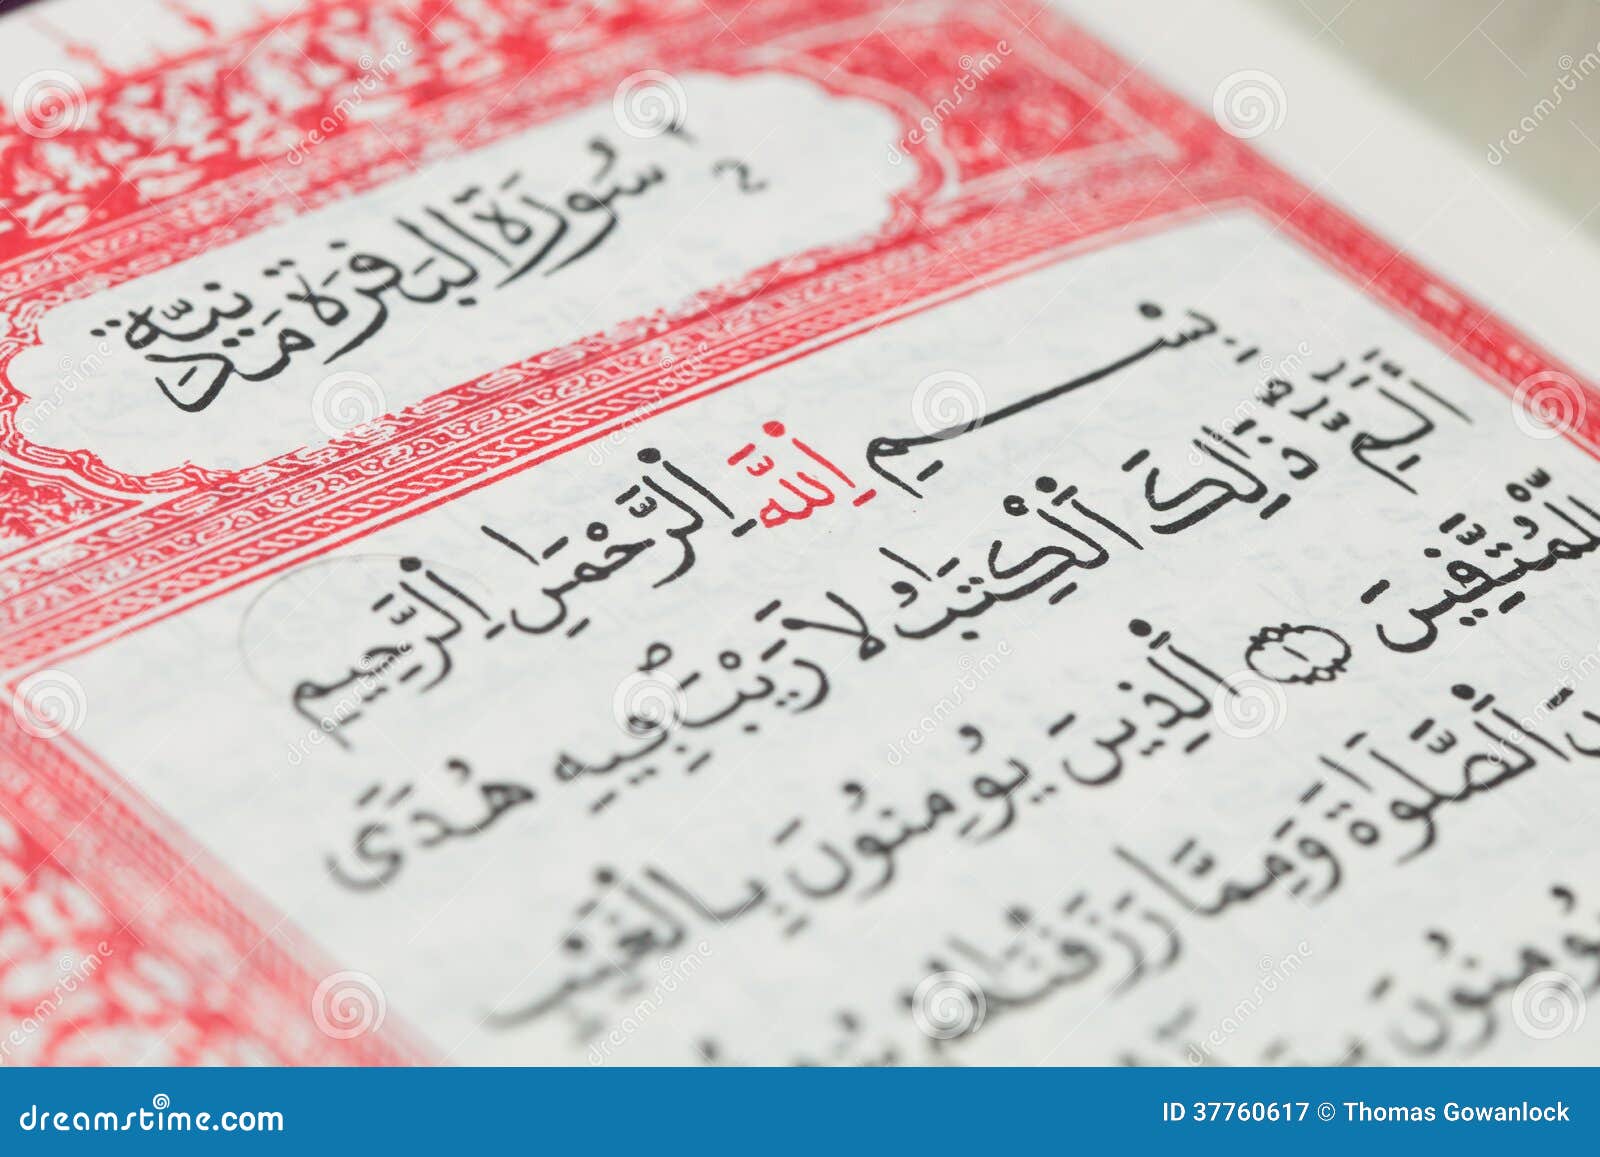 سُورَةُ البَقَرَة مَدَنِيَّة
2 ٢
بِسْمِ اِ۬للَّهِ اِ۬لرَّحْمَٰنِ اِ۬لرَّحِيمِ
أَلَٓمِّٓ ذَٰلِكَ اَ۬لْكِتَٰبُ لَا رَيْبَ فِيهِ هُدىَ
لِّلْمُتَّقِينَ ١ اَ۬لذِينَ يُومِنُونَ بِالْغَيْبِ
اَ۬لصَّلَوٰةَ وَمِمَّا رَزَقْنَٰهُمْ
يُومِنُونَ
dreamstime.com
ID 37760617 © Thomas Gowanlock